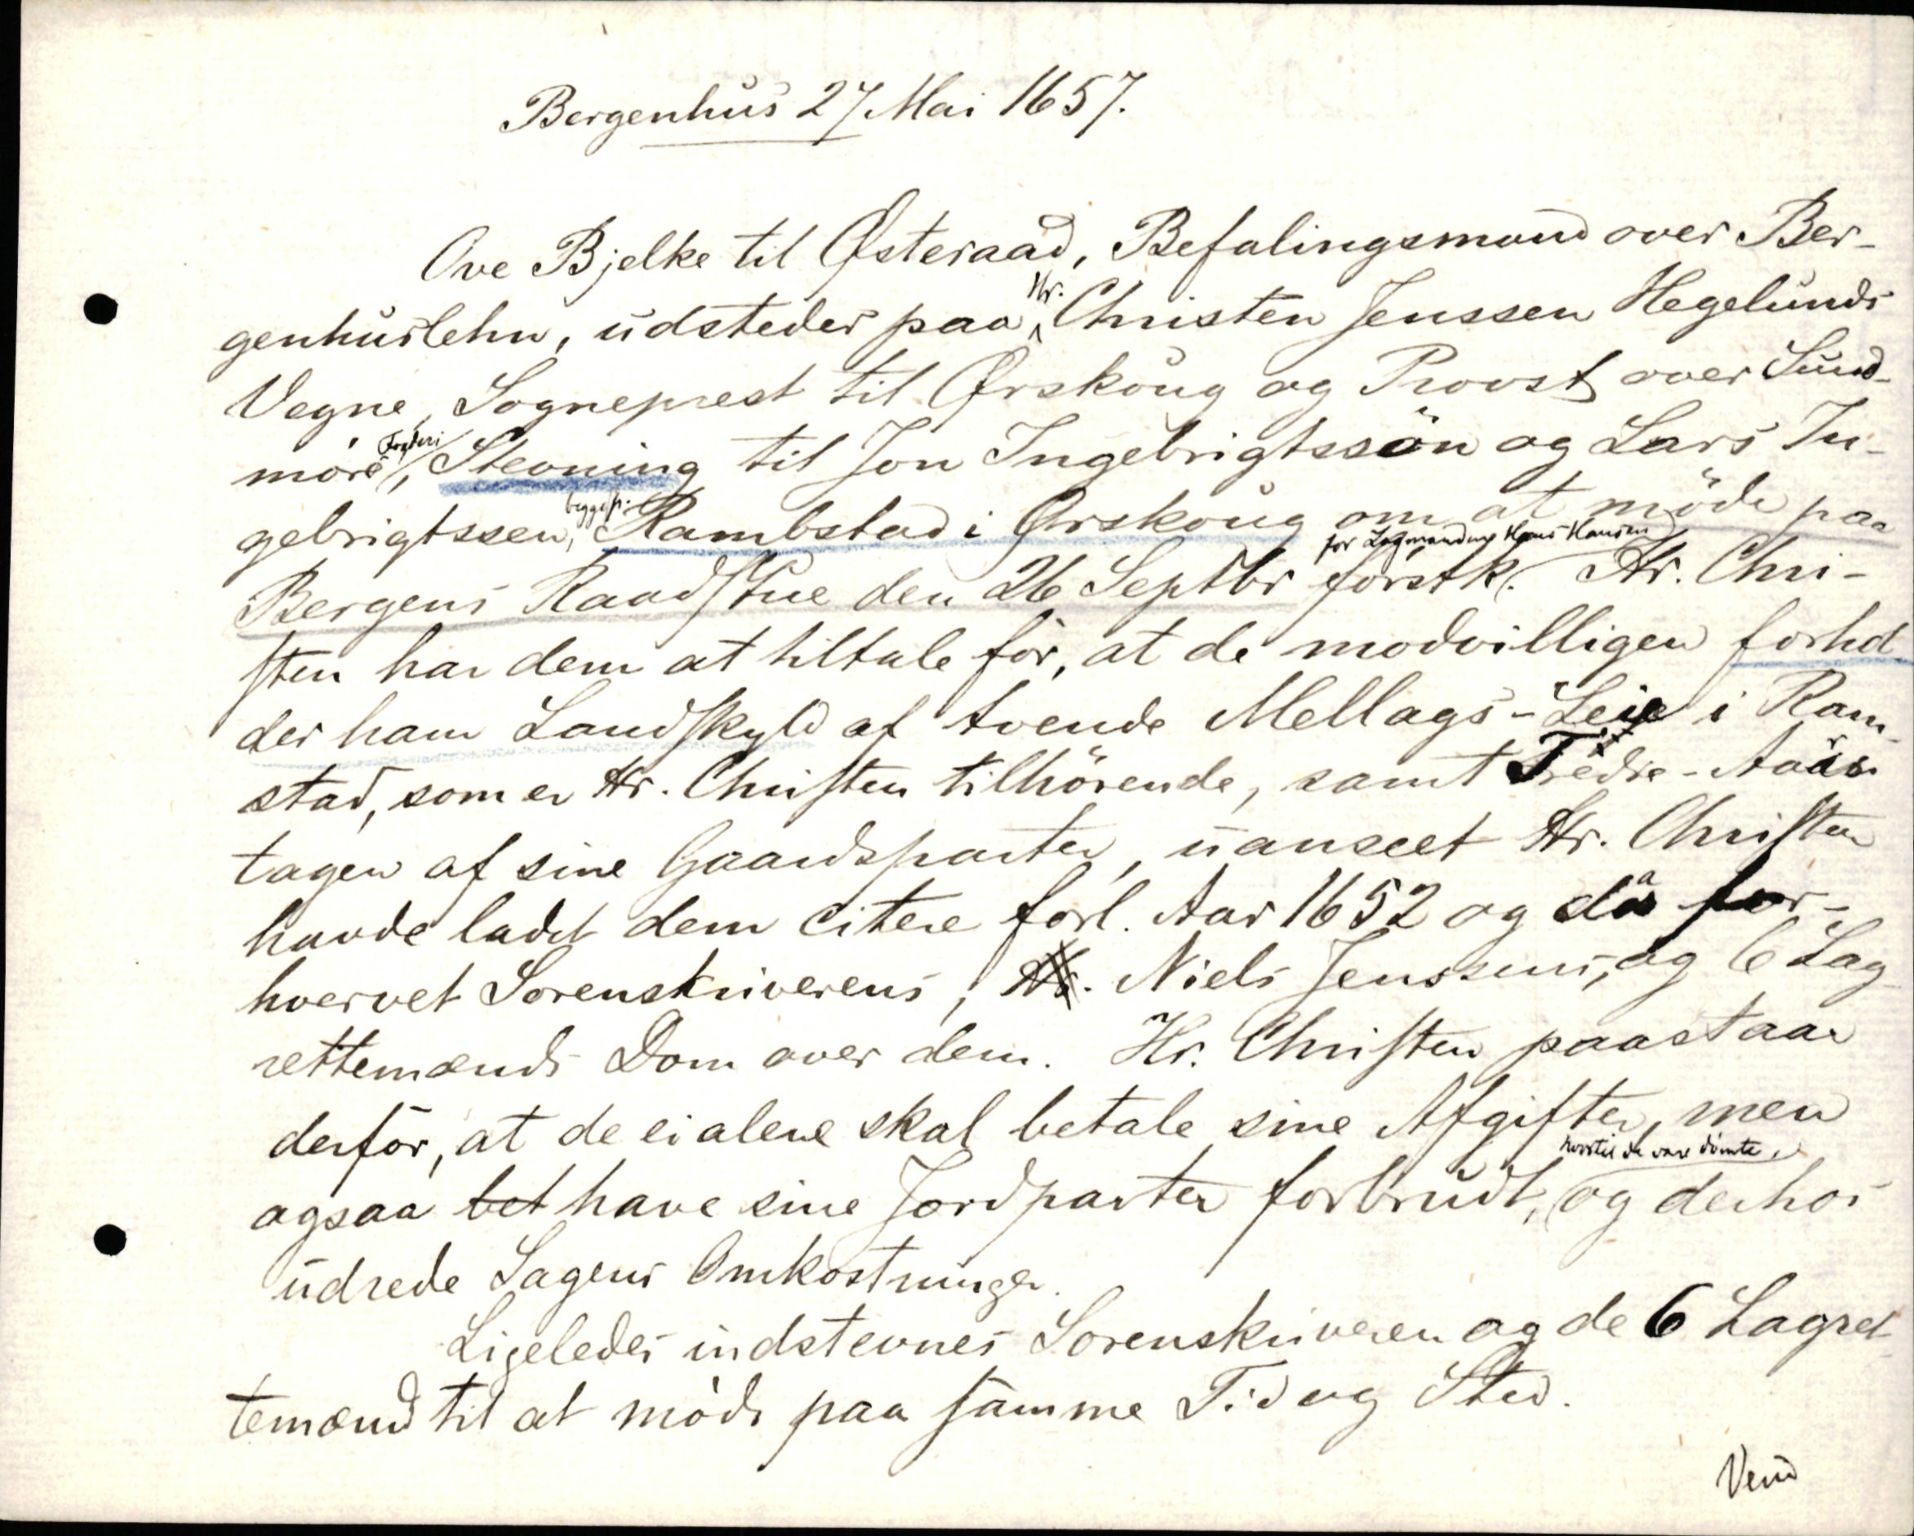 Bergenhus 27 Mai 1657.
Ove Bjelke til Østeraad, Befalingsmand over Ber-
genhuslehn, udsteder paa Hr. Christen Jenssen Hegelunds
Vegne, Sogneprest til Ørskoug og Provst over Sund-
møre Fogderi, Stevning til Jon Ingebrigtssön og Lars In-
gebrigtssen, begge p. Rambstad i Ørskoug om at möde paa
Bergens Raadstue den 26 Septbr förstk. for Lagmanden Hans Hansen. Hr. Chri-
sten har dem at tiltale for, at de modvilligen forhol-
der ham Landskyld af tvende Mellags-Leie i Ram-
stad, som er Hr. Christen tilhörende, samt Tredie-Aars
tagen af sine Gaardsparter, uanseet Hr. Christen
havde ladet dem citere forl. Aar 1652 og da for-
hvervet Sorenskriverens, Hr. Niels Jenssens, og 6 Lag-
rettemænds Dom over dem. Hr. Christen paastaar
derfor, at de ei alene skal betale sine Afgifter, men
ogsaa bet have sine Jordparter forbrudt, hvortil de vare dömte, og derhos
udrede Sagens Omkostninger.
Ligeledes indstevnes Sorenskriveren og de 6 Lagret-
temænd til at möde paa samme Tid og Sted.
Vend